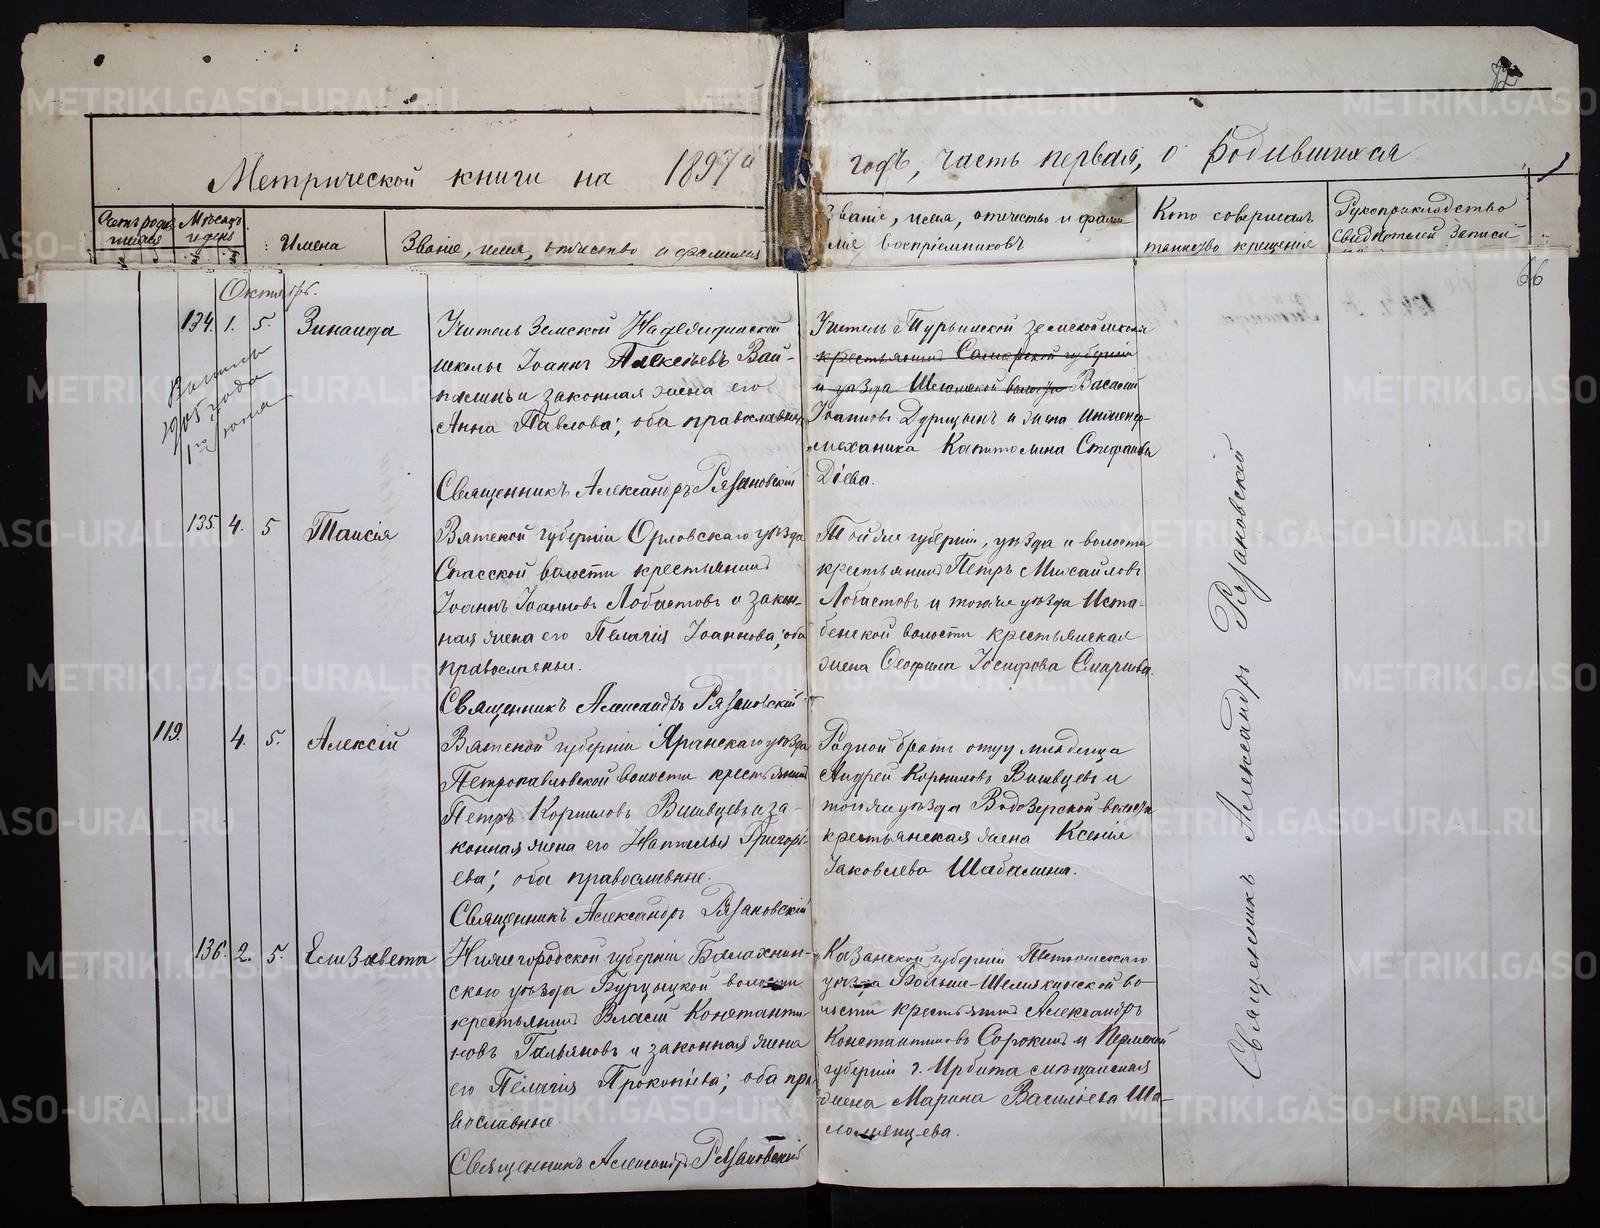 62
Метрической книги на 1897й
годъ, часть первая, о Родившихся
Мѣсяцъ
и день
Имена
Званіе, имя, отчество и фамилія
Званіе, имя, отчество и фами
лія воспріемниковъ
Кто совершалъ
таинство крещенія
Рукоприкладство
свидѣтелей записи
66
Октябрь.
134. 1. 5. Зинаида
1905 года
1го іюня
Учитель Земской Надеждинской
школы Іоаннъ Алексѣевъ
и законная жена его
Анна Павлова; оба православные
Священникъ Александръ Рязановскій
Учитель Турьинской земской школы
крестьянинъ Самарской губерніи
и уѣзда волости Василій
Іоанновъ и жена инженер-
механика Капитолина Стефанова
Діева.
135. 4. 5 Таисія
Вятской губерніи Орловскаго уѣзда
Спасской волости крестьянинъ
Іоаннъ Іоанновъ Лобастовъ и закон-
ная жена его Пелагія Іоаннова; оба
православные.
Священникъ Александръ Рязановскій
Той же губерніи, уѣзда и волости
крестьянинъ Петръ Михайловъ
Лобастовъ и того же уѣзда Иста-
бенской волости крестьянская
жена Ѳеофила Іосифова
119. 4. 5. Алексій
Вятской губерніи Яранскаго уѣзда
Петропавловской волости крестьянинъ
Петръ Корниловъ Вишвцевъ и за-
конная жена его Наталья Григорь-
ева; оба православные.
Священникъ Александръ Рязановскій
Родной братъ отцу младенца
Андрей Корниловъ Вишвцевъ и
того же уѣзда Водозерской волости
крестьянская жена Ксенія
Іаковлева Шабалина.
136. 2. 5. Елизавета
Нижегородской губерніи Балахнин-
скаго уѣзда волости
крестьянинъ Власій Константи-
новъ Гальяновъ и законная жена
его Пелагія Прокопіева; оба пра-
вославные.
Священникъ Александръ Рязановскій
Казанской губерніи Тетюшскаго
уѣзда Больше-Шемякинской во-
лости крестьянинъ Александръ
Константиновъ Сорокинъ и Пермской
губерніи г. Ирбита мѣщанская
жена Марина Васильева Ша-
ломянцева.
Священникъ Александръ Рязановскій
METRIKI.GASO-URAL.RU